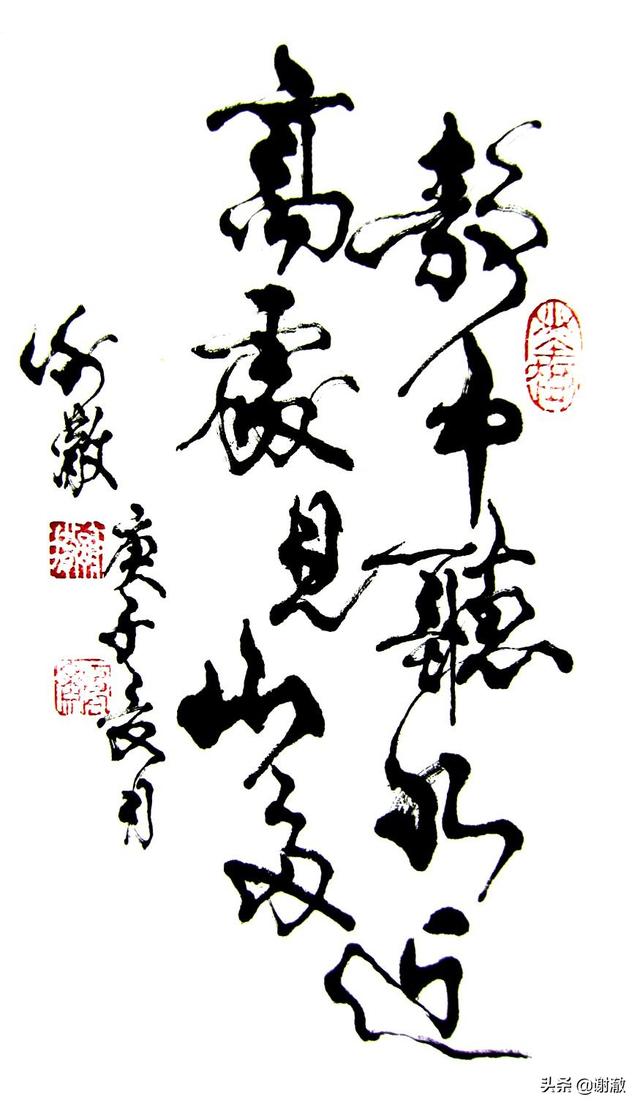 靜中聽水近
高處見山多
庚子夏月
谢澈
头条 @谢澈